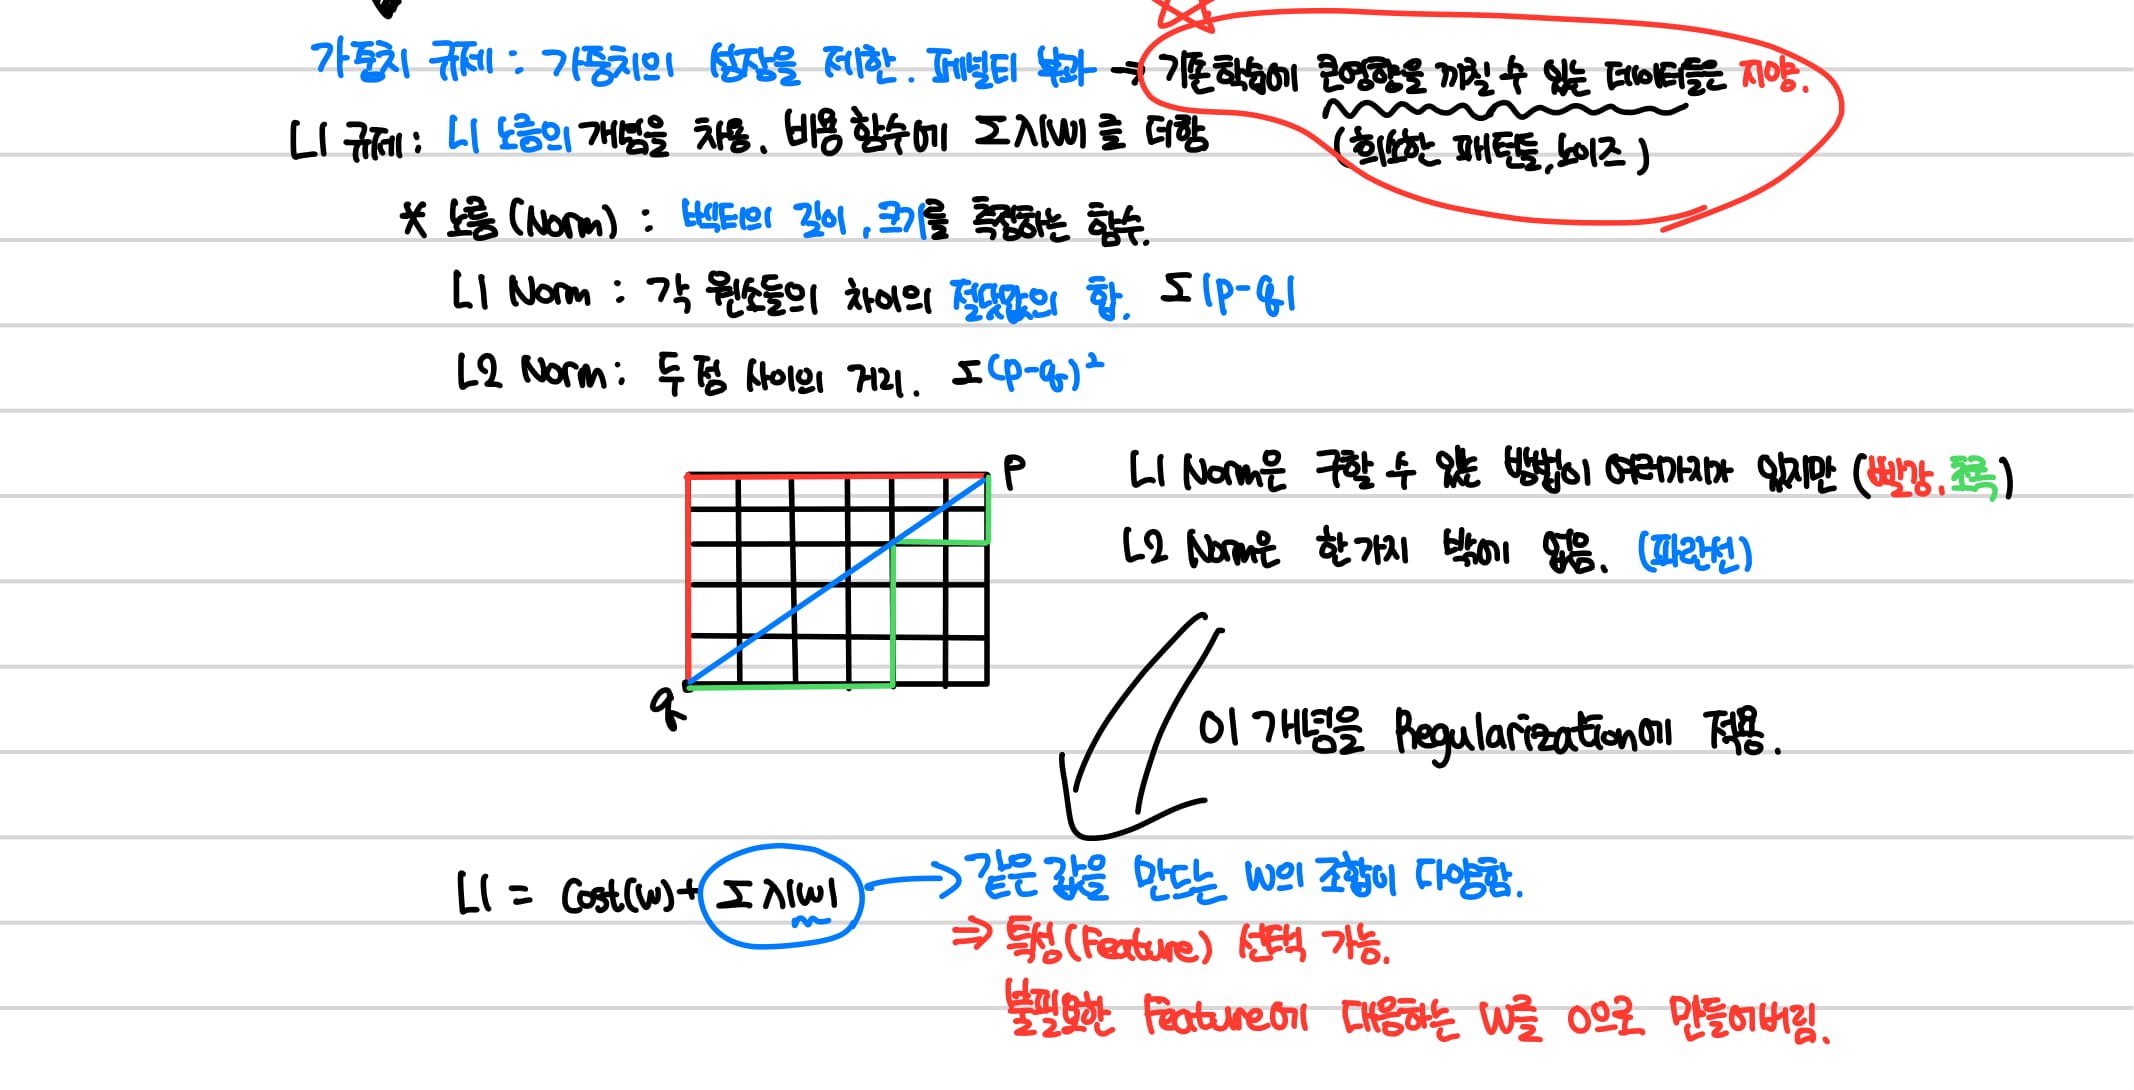 가중치 규제 : 가중치의 성장을 제한. 페널티 부과 → 기존학습에 큰영향을 끼칠 수 있는 데이터들은 지양.
L1 규제 : L1 노름의 개념을 차용. 비용 함수에 Σλ|W| 를 더함 (희소한 패턴들, 노이즈)
* 노름 (Norm) : 벡터의 길이, 크기를 측정하는 함수.
L1 Norm : 각 원소들의 차이의 절댓값의 합. Σ|p-q|
L2 Norm : 두 점 사이의 거리. Σ(p-q)²
p
L1 Norm은 구할 수 있는 방법이 여러가지가 있지만 (빨강, 초록)
L2 Norm은 한가지 밖에 없음. (파란선)
q
이 개념을 Regularization에 적용.
L1 = Cost(W) + Σλ|W| → 같은 값을 만드는 W의 조합이 다양함.
⇒ 특성(Feature) 선택 가능.
불필요한 Feature에 대응하는 W를 0으로 만들어버림.